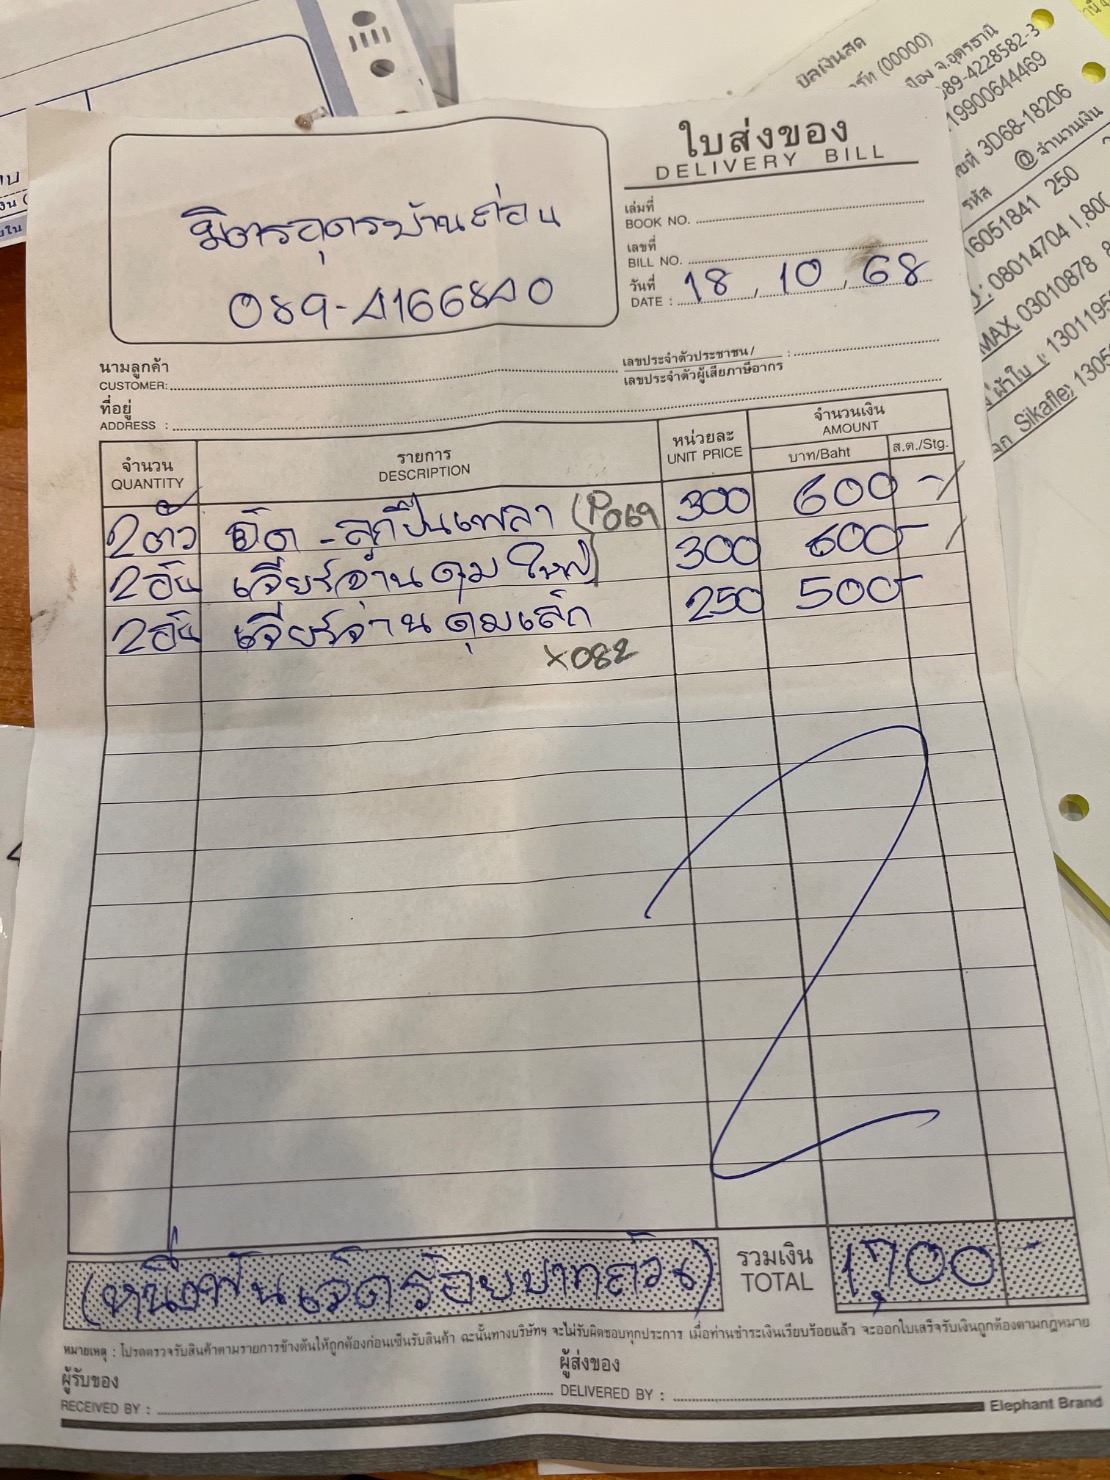 ใบส่งของ
DELIVERY BILL
มิตรอุดรบ้านถ่อน
089-4166840
เล่มที่
BOOK NO.
เลขที่
BILL NO.
วันที่
DATE : 18, 10, 68
นามลูกค้า
CUSTOMER:
เลขประจำตัวประชาชน/ :
เลขประจำตัวผู้เสียภาษีอากร
ที่อยู่
ADDRESS :
จำนวน รายการ หน่วยละ จำนวนเงิน
QUANTITY DESCRIPTION UNIT PRICE AMOUNT
บาท/Baht ส.ต./Stg.
2ตัว อัด - ลูกปืนเพลา (P069 300 600 -/
2อัน เจียร์จาน ดุม ใหญ่) 300 600- /
2อัน เจียร์จาน ดุมเล็ก 250 500-
X082
(หนึ่งพันเจ็ดร้อยบาทถ้วน) รวมเงิน 1,700 -
TOTAL
หมายเหตุ : โปรดตรวจรับสินค้าตามรายการข้างต้นให้ถูกต้องก่อนเซ็นรับสินค้า ฉะนั้นทางบริษัทฯ จะไม่รับผิดชอบทุกประการ เมื่อท่านชำระเงินเรียบร้อยแล้ว จะออกใบเสร็จรับเงินถูกต้องตามกฎหมาย
ผู้รับของ ผู้ส่งของ
RECEIVED BY : DELIVERED BY :
Elephant Brand
บิลเงินสด
(00000)
จ.อุดรธานี
089-4228582-3
19900644469
3D68-18206
รหัส @ จำนวนเงิน
16051841 250
08014704 1,800
MAX, 03010878
ผ้าใบ
Sikaflex